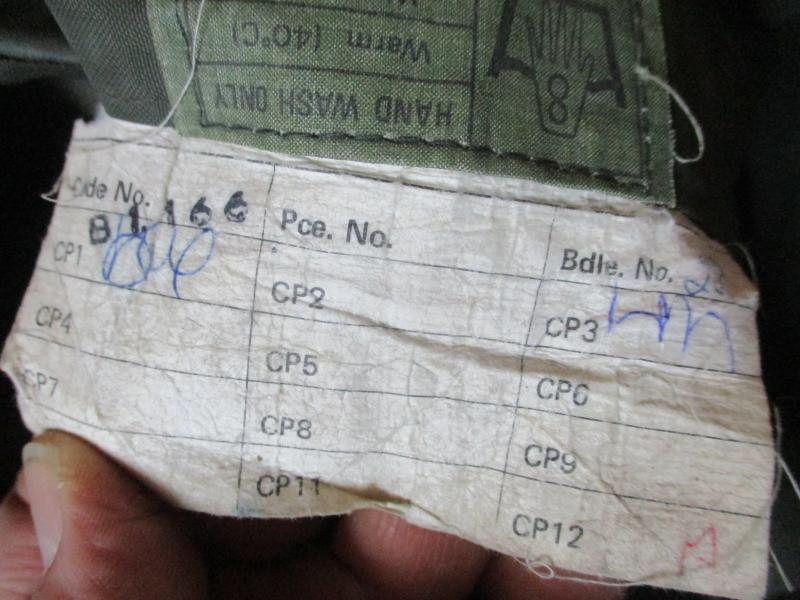 HAND WASH ONLY
Warm (40°C)
8
Code No. Pce. No. Bdle. No.
B1.166
CP1 CP2 CP3
CP4 CP5 CP6
CP7 CP8 CP9
CP11 CP12